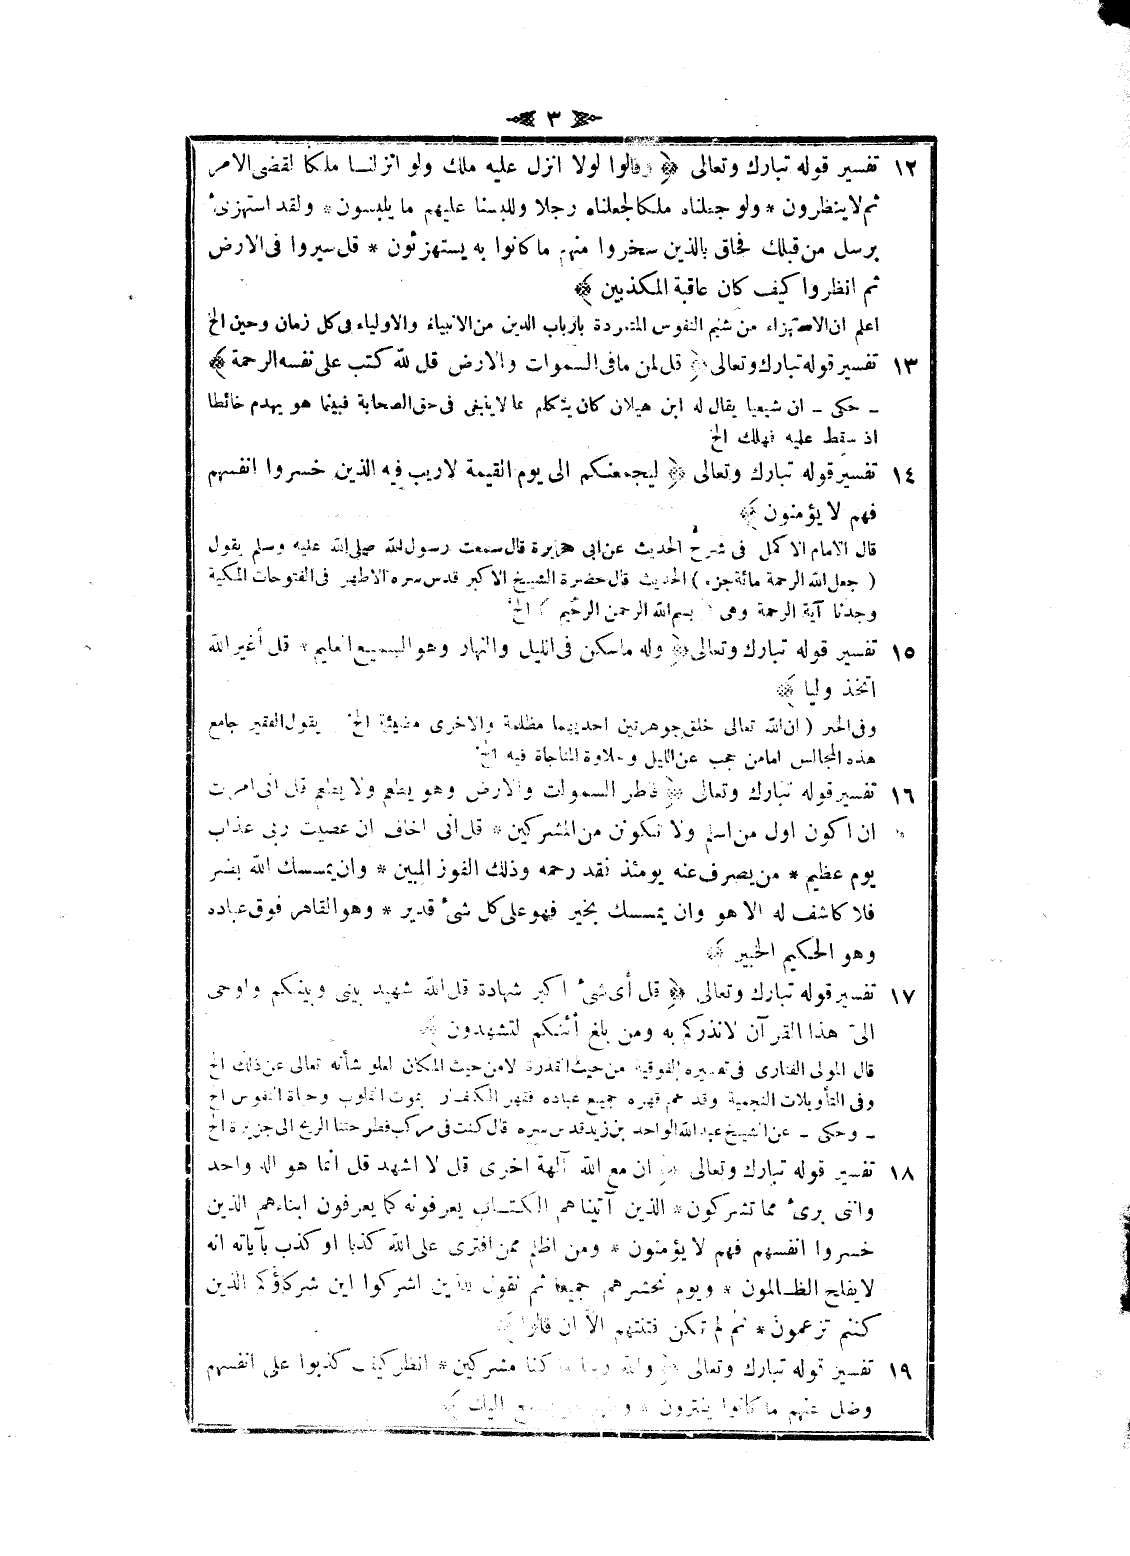 ٣
١٢ تفسير قوله تبارك وتعالى ﴿ وقالوا لولا انزل عليه ملك ولو انزلنا ملكا لقضى الامر
ثم لا ينظرون * ولو جعلناه ملكا لجعلناه رجلا وللبسنا عليهم ما يلبسون * ولقد استهزئ
برسل من قبلك فحاق بالذين سخروا منهم ما كانوا به يستهزئون * قل سيروا فى الارض
ثم انظروا كيف كان عاقبة المكذبين ﴾
اعلم ان الاستهزاء من شيم النفوس المتمردة بارباب الدين من الانبياء والاولياء فى كل زمان وحين الخ
١٣ تفسير قوله تبارك وتعالى ﴿ قل لمن ما فى السموات والارض قل لله كتب على نفسه الرحمة ﴾
ـ حكى ـ ان شيعيا يقال له ابن هيلان كان يتكلم بما لا ينبغى فى حق الصحابة فبينما هو يهدم حائطا
اذ سقط عليه فهلك الخ
١٤ تفسير قوله تبارك وتعالى ﴿ ليجمعنكم الى يوم القيمة لا ريب فيه الذين خسروا انفسهم
فهم لا يؤمنون ﴾
قال الامام الاكمل فى شرح الحديث عن ابى هريرة قال سمعت رسول الله صلى الله عليه وسلم يقول
( جعل الله الرحمة مائة جزء ) الحديث قال حضرة الشيخ الاكبر قدس سره الاطهر فى الفتوحات المكية
وجدنا آية الرحمة وهى ﴿ بسم الله الرحمن الرحيم ﴾ الخ
١٥ تفسير قوله تبارك وتعالى ﴿ وله ما سكن فى الليل والنهار وهو السميع العليم * قل أغير الله
اتخذ وليا ﴾
وفى الخبر ( ان الله تعالى خلق جوهرتين احديهما مظلمة والاخرى مضيئة الخ يقول الفقير جامع
هذه المجالس امامن حجب عن الليل وحلاوة المناجاة فيه الخ
١٦ تفسير قوله تبارك وتعالى ﴿ فاطر السموات والارض وهو يطعم ولا يطعم قل انى امرت
ان اكون اول من اسلم ولا تكونن من المشركين * قل انى اخاف ان عصيت ربى عذاب
يوم عظيم * من يصرف عنه يومئذ فقد رحمه وذلك الفوز المبين * وان يمسسك الله بضر
فلا كاشف له الا هو وان يمسسك بخير فهو على كل شئ قدير * وهو القاهر فوق عباده
وهو الحكيم الخبير ﴾
١٧ تفسير قوله تبارك وتعالى ﴿ قل أى شئ اكبر شهادة قل الله شهيد بينى وبينكم واوحى
الىّ هذا القرآن لانذركم به ومن بلغ أئنكم لتشهدون ﴾
قال المولى الفنارى فى تفسيره الفوقية من حيث القدرة لا من حيث المكان لعلو شأنه تعالى عن ذلك الخ
وفى التأويلات النجمية وقد عم قهره جميع عباده فقهر الكفار بموت القلوب وحياة النفوس الخ
ـ وحكى ـ عن الشيخ عبد الله الواحد بن زيد قدس سره قال كنت فى مركب فطرحتنا الريح الى جزيرة الخ
١٨ تفسير قوله تبارك وتعالى ﴿ ان مع الله آلهة اخرى قل لا اشهد قل انما هو اله واحد
واننى برئ مما تشركون * الذين آتيناهم الكتاب يعرفونه كما يعرفون ابناءهم الذين
خسروا انفسهم فهم لا يؤمنون * ومن اظلم ممن افترى على الله كذبا او كذب بآياته انه
لا يفلح الظالمون * ويوم نحشرهم جميعا ثم نقول للذين اشركوا اين شركاؤكم الذين
كنتم تزعمون * ثم لم تكن فتنتهم الا ان قالوا ﴾
١٩ تفسير قوله تبارك وتعالى ﴿ والله ربنا ما كنا مشركين * انظر كيف كذبوا على انفسهم
وضل عنهم ما كانوا يفترون * ومنهم من يستمع اليك ﴾